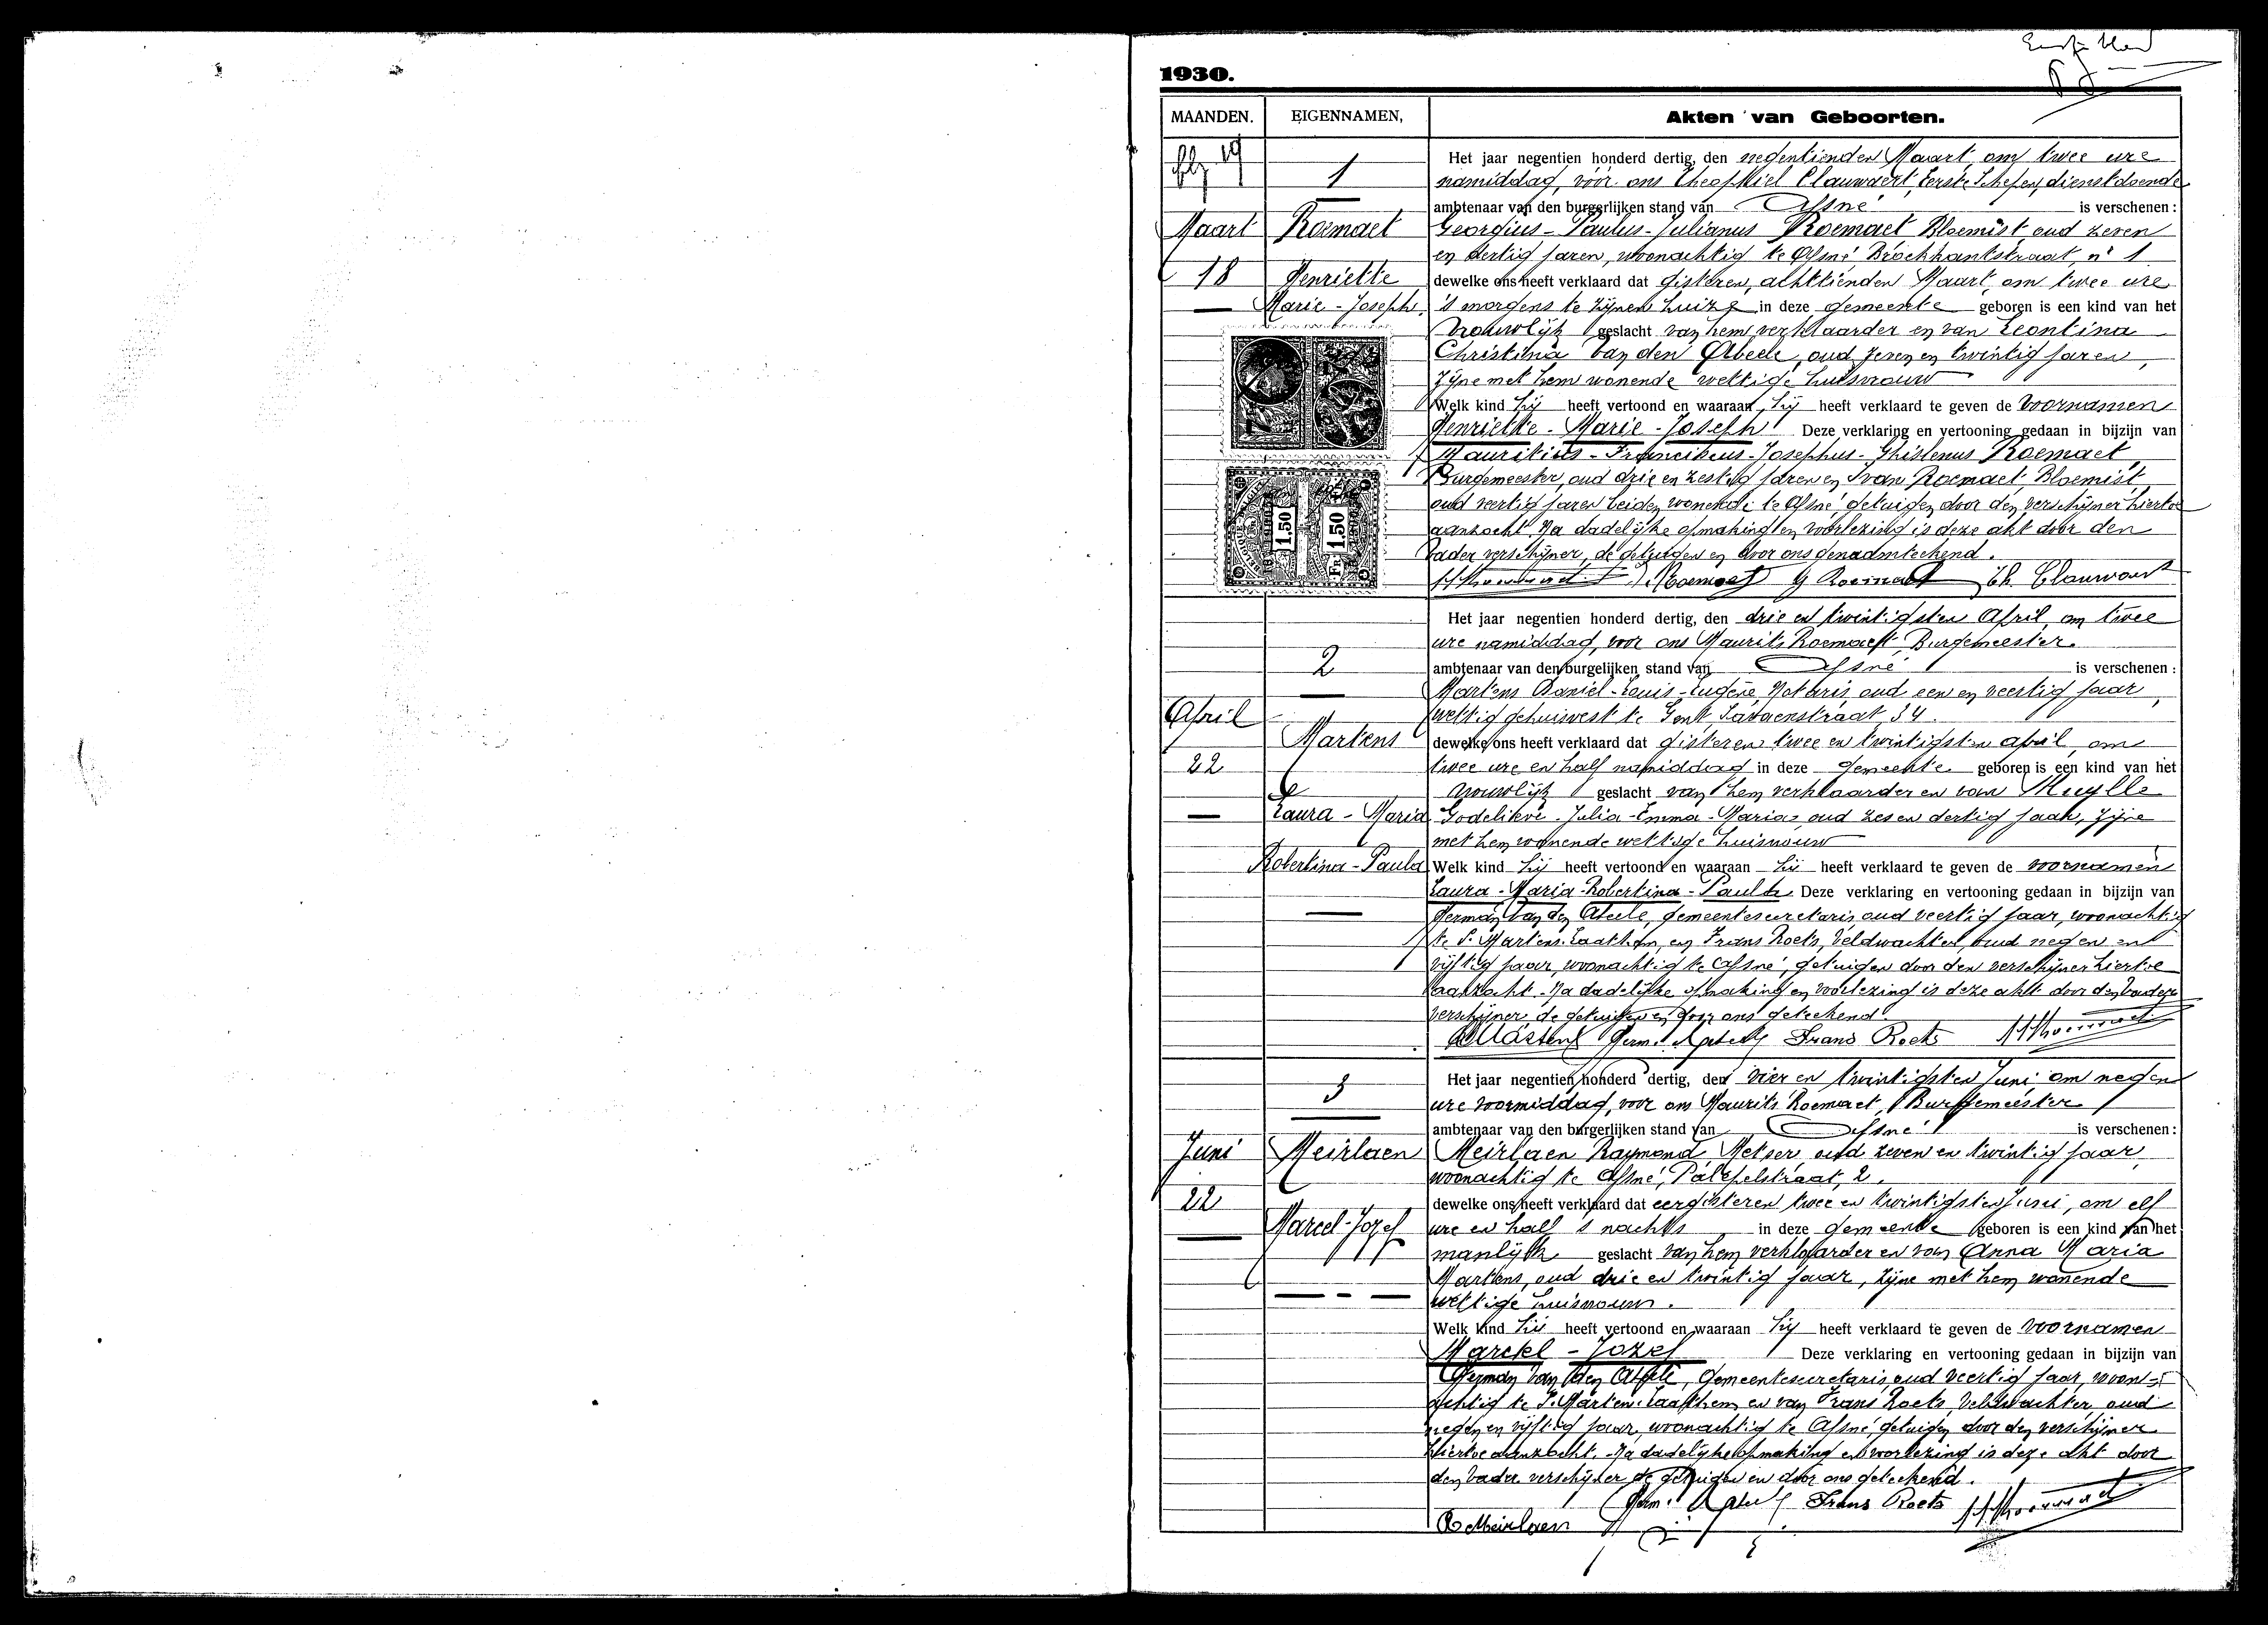 1930.
MAANDEN. EIGENNAMEN, Akten van Geboorten.
19
1
Maart
Roemaet
18
Henriette
Marie - Joseph.
Het jaar negentien honderd dertig, den negentienden Maart, om twee ure
namiddag, voor ons Theophiel Clauwaert, Eerste Schepen, dienstdoende
ambtenaar van den burgerlijken stand van Afsné is verschenen :
Georgius - Paulus - Julianus Roemaet Bloemist, oud zeven
en dertig jaren, woonachtig te Afsné Broekkantstraat, n° 1
dewelke ons heeft verklaard dat gisteren, achttienden Maart, om twee ure
's morgens te zijnen huize in deze gemeente geboren is een kind van het
vrouwlijk geslacht van hem verklaarder en van Leontina
Christina Van den Abeele, oud zeven en twintig jaren,
zijne met hem wonende wettige huisvrouw
Welk kind hij heeft vertoond en waaraan hij heeft verklaard te geven de voornamen
Henriette - Marie - Joseph Deze verklaring en vertooning gedaan in bijzijn van
Mauritius - Franciscus - Josephus - Ghislenus Roemaet,
Burgemeester, oud drie en zestig jaren en Ivan Roemaet Bloemist,
oud veertig jaren beiden wonende te Afsné getuigen door den verschijner hiertoe
aanzocht. Na dadelijke opmaking en voorlezing is deze akt door den
vader verschijner, de getuigen en door ons genaamteekend.
Roemaet G Roemaet Th. Clauwaert
BELGIQUE-BELGIË
1.50
FR 1.50
2
April
Martens
22
Laura - Maria
Robertina - Paula
Het jaar negentien honderd dertig, den drie en twintigsten April, om twee
ure namiddag, voor ons Maurits Roemaet, Burgemeester
ambtenaar van den burgelijken stand van Afsné is verschenen :
Martens Daniel - Louis - Eugène, Notaris, oud een en veertig jaar,
wettig gehuisvest te Gent, Savaenstraat, 34.
dewelke ons heeft verklaard dat gisteren twee en twintigsten april, om
twee ure en half namiddag in deze gemeente geboren is een kind van het
vrouwlijk geslacht van hem verklaarder en van Muylle
Godelieve - Julia - Emma - Maria, oud zes en dertig jaar, zijne
met hem wonende wettige huisvrouw
Welk kind hij heeft vertoond en waaraan hij heeft verklaard te geven de voornamen
Laura - Maria - Robertina - Paula Deze verklaring en vertooning gedaan in bijzijn van
Herman Van den Abeele, gemeentesecretaris, oud veertig jaar, woonachtig
te St Martens-Laathem, en Frans Roets, Veldwachter, oud negen en
vijftig jaar, woonachtig te Afsné, getuigen door den verschijner hiertoe
aanzocht. Na dadelijke opmaking en voorlezing is deze akt door den vader
verschijner de getuigen en door ons geteekend.
DMartens Frans Roets
3
Juni
Meirlaen
22
Marcel - Jozef
Het jaar negentien honderd dertig, den vier en twintigsten Juni om negen
ure voormiddag, voor ons Maurits Roemaet, Burgemeester
ambtenaar van den burgerlijken stand van Afsné is verschenen :
Meirlaen Raymond, Metser, oud zeven en twintig jaar,
woonachtig te Afsné, Patepelstraat, 2.
dewelke ons heeft verklaard dat eergisteren twee en twintigsten Juni, om elf
ure en half 's nachts in deze gemeente geboren is een kind van het
manlijk geslacht van hem verklaarder en van Anna Maria
Martens, oud drie en twintig jaar, zijne met hem wonende
wettige huisvrouw.
Welk kind hij heeft vertoond en waaraan hij heeft verklaard te geven de voornamen
Marcel - Jozef Deze verklaring en vertooning gedaan in bijzijn van
Herman Van den Abeele, Gemeentesecretaris, oud veertig jaar, woon-
achtig te St Martens-Laathem en van Frans Roets, Veldwachter, oud
negen en vijftig jaar, woonachtig te Afsné, getuigen door den verschijner
hiertoe aanzocht. Na dadelijke opmaking en voorlezing is deze akt door
den vader verschijner de getuigen en door ons geteekend.
Frans Roets
R Meirlaen